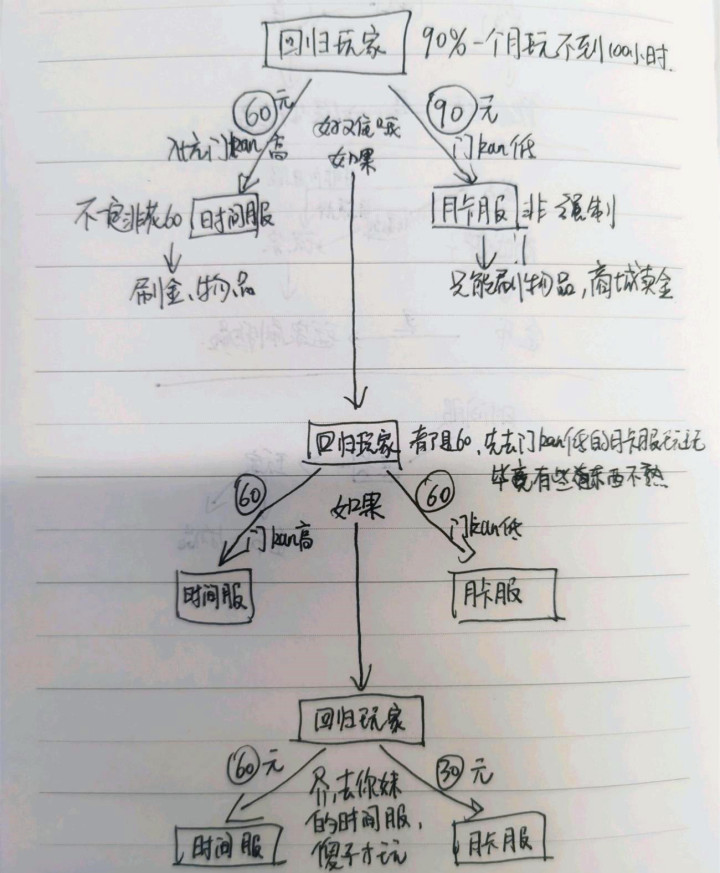 回归玩家 90%一个月玩不到100小时.
60元
90元
门kan高
如果
门kan低
不一定非花60
时间服
月卡服
非强制
刷金、物品
只能刷物品,商城卖金
回归玩家
都是60,先去门kan低的月卡服玩玩
毕竟有些东西不熟
60
如果
60
门kan高
门kan低
时间服
月卡服
回归玩家
60元
30元
去你妹
的时间服,
傻子才玩
时间服
月卡服